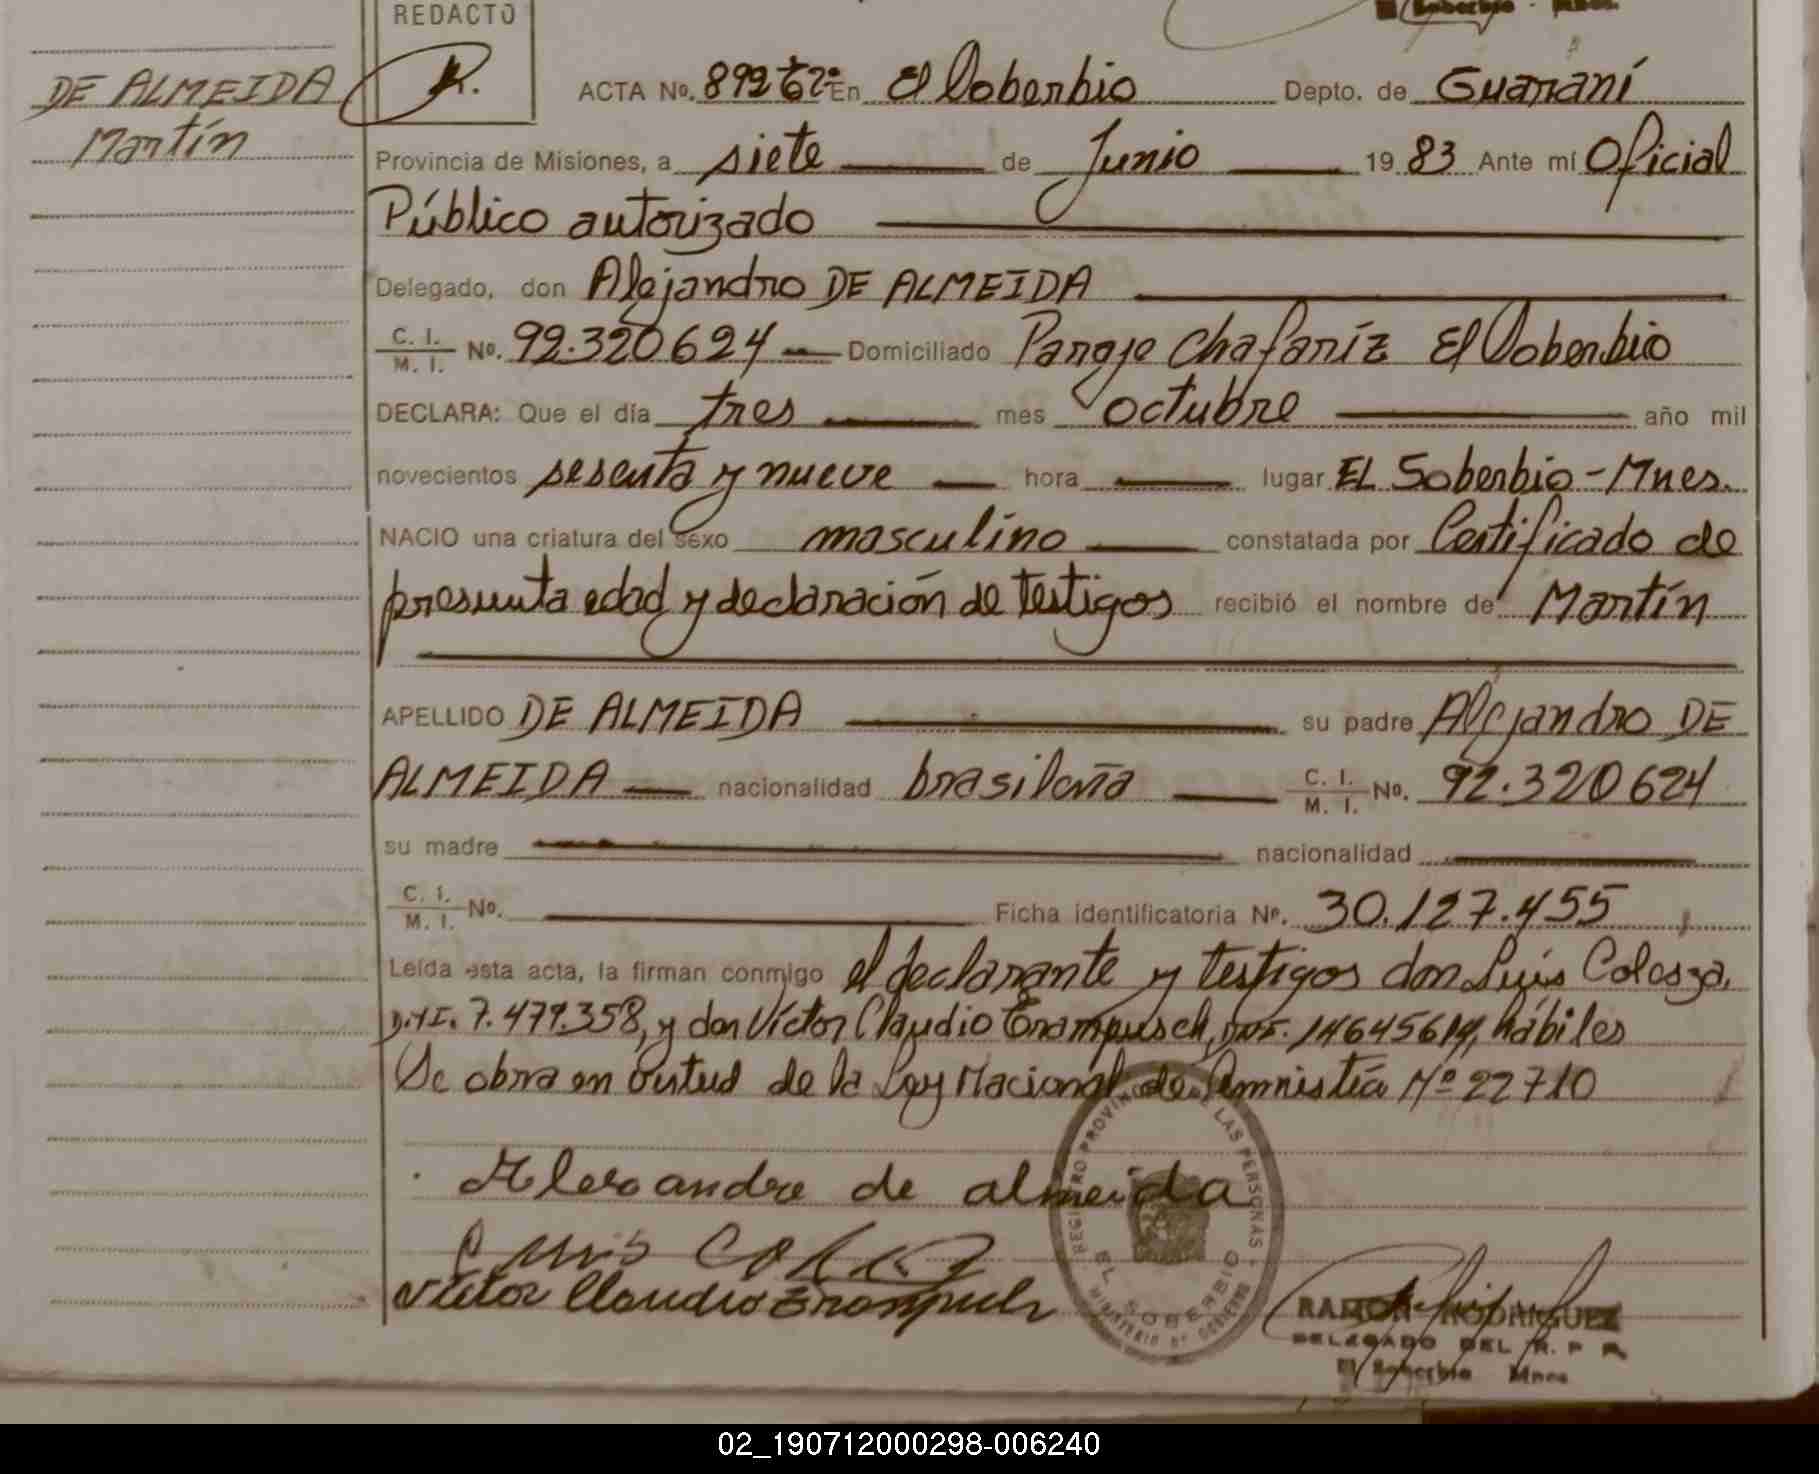 REDACTO
El Soberbio - Mnes.
DE ALMEIDA
Martín
ACTA No. 892 Tº 2º En El Soberbio Depto. de Guaraní
Provincia de Misiones, a siete de Junio 19 83 Ante mí Oficial
Público autorizado
Delegado, don Alejandro DE ALMEIDA
C. I. / M. I. No. 92.320624 Domiciliado Paraje Chafaríz El Soberbio
DECLARA: Que el día tres mes octubre año mil
novecientos sesenta y nueve hora lugar EL Soberbio - Mnes.
NACIO una criatura del sexo masculino constatada por Certificado de
presunta edad y declaración de testigos recibió el nombre de Martín
APELLIDO DE ALMEIDA su padre Alejandro DE
ALMEIDA nacionalidad brasileña C. I. / M. I. No. 92.320624
su madre nacionalidad
C. I. / M. I. No. Ficha identificatoria Nº. 30.127.455
Leída esta acta, la firman conmigo el declarante y testigos don Luis
7.479.358, y don Víctor Claudio Enampusch, 14645614, hábiles
Se obra en virtud de la Ley Nacional de Amnistía Nº 22710
de almeida
Luis
Victor Claudio Enampusch
REGISTRO PROVINCIAL DE LAS PERSONAS
EL SOBERBIO
MINISTERIO DE GOBIERNO
RAMON RODRIGUEZ
DELEGADO DEL R. P. P.
El Soberbio Mnes
02_190712000298-006240